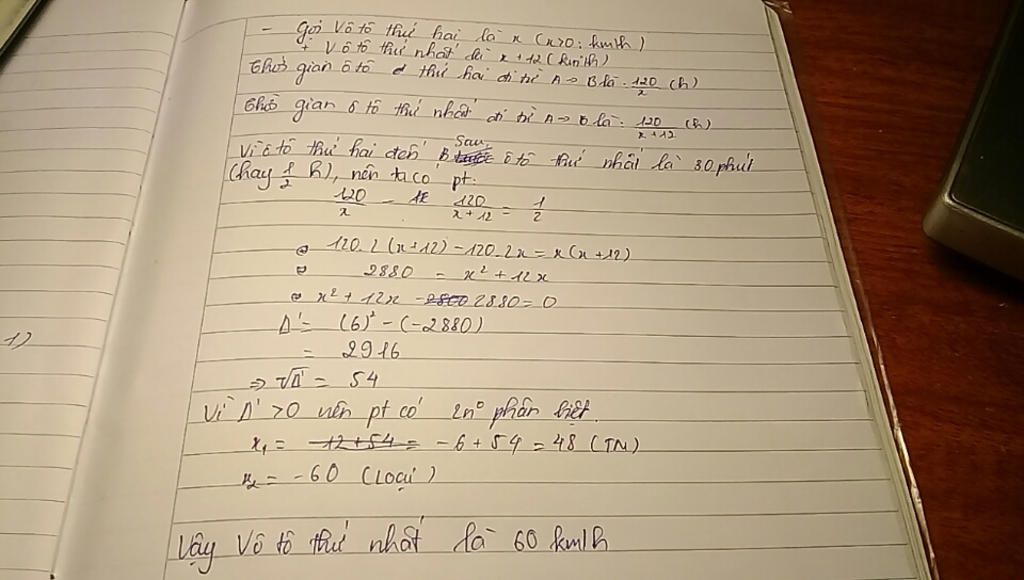 - Gọi Vô tô thứ hai là x (x>0; km/h)
+ Vô tô thứ nhất là x+12 (km/h)
Thời gian ô tô thứ hai đi từ A→B là: 120/x (h)
Thời gian ô tô thứ nhất đi từ A→B là: 120/x+12 (h)
Vì ô tô thứ hai đến B sau ô tô thứ nhất là 30 phút
(hay 1/2 h), nên ta có pt:
120/x - 120/x+12 = 1/2
⇔ 120.2(x+12) - 120.2x = x(x+12)
⇔ 2880 = x² + 12x
⇔ x² + 12x - 2880 = 0
Δ' = (6)² - (-2880)
= 2916
⇒ √Δ' = 54
Vì Δ' > 0 nên pt có 2n° phân biệt.
x₁ = -6 + 54 = 48 (TM)
x₂ = -60 (Loại)
Vậy Vô tô thứ nhất là 60 km/h
1)